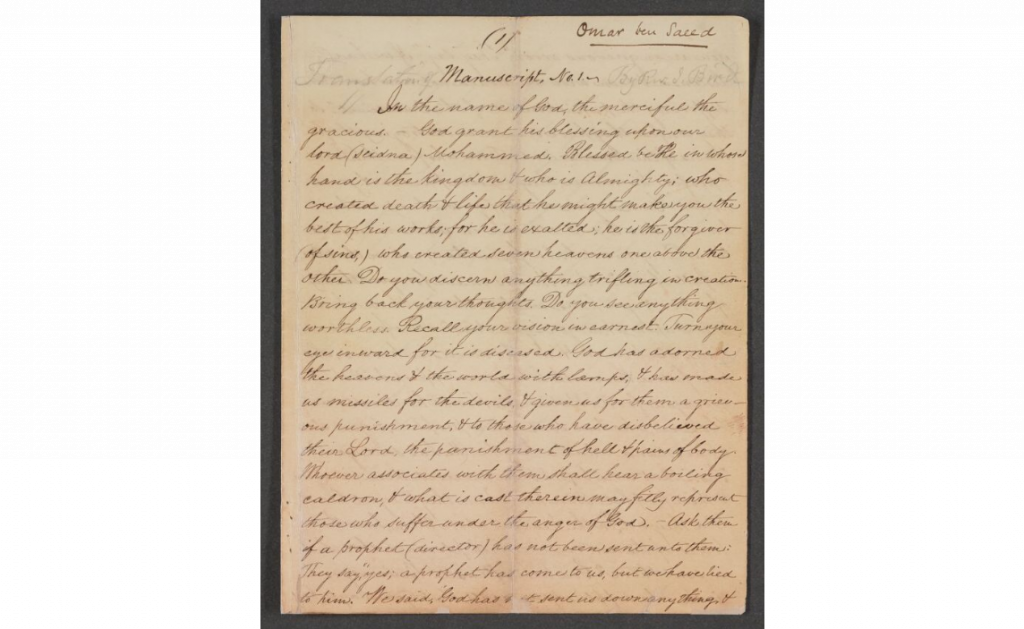 Omar ben Saeed
(1)
Translation of Manuscript, No. 1. By Rev. I. Bird
In the name of God, the merciful the
gracious. – God grant his blessing upon our
lord (seidna) Mohammed. Blessed be He in whose
hand is the kingdom & who is Almighty; who
created death & life that he might make you the
best of his works; for he is exalted; he is the forgiver
(of sins,) who created seven heavens one above the
other. Do you discern anything trifling in creation.
Bring back your thoughts. Do you see anything
worthless. Recall your vision in earnest. Turn your
eye inward for it is diseased. God has adorned
the heavens & the world with lamps, & has made
us missiles for the devils, & given us for them a griev-
ous punishment, & to those who have disbelieved
their Lord, the punishment of hell & pains of body.
Whoever associates with them shall hear a boiling
caldron, & what is cast therein may fitly represent
those who suffer under the anger of God. – Ask them
if a prophet (director) has not been sent unto them:
They say, "yes; a prophet has come to us, but we have lied
to him." We said, "God has not sent us down anything, &